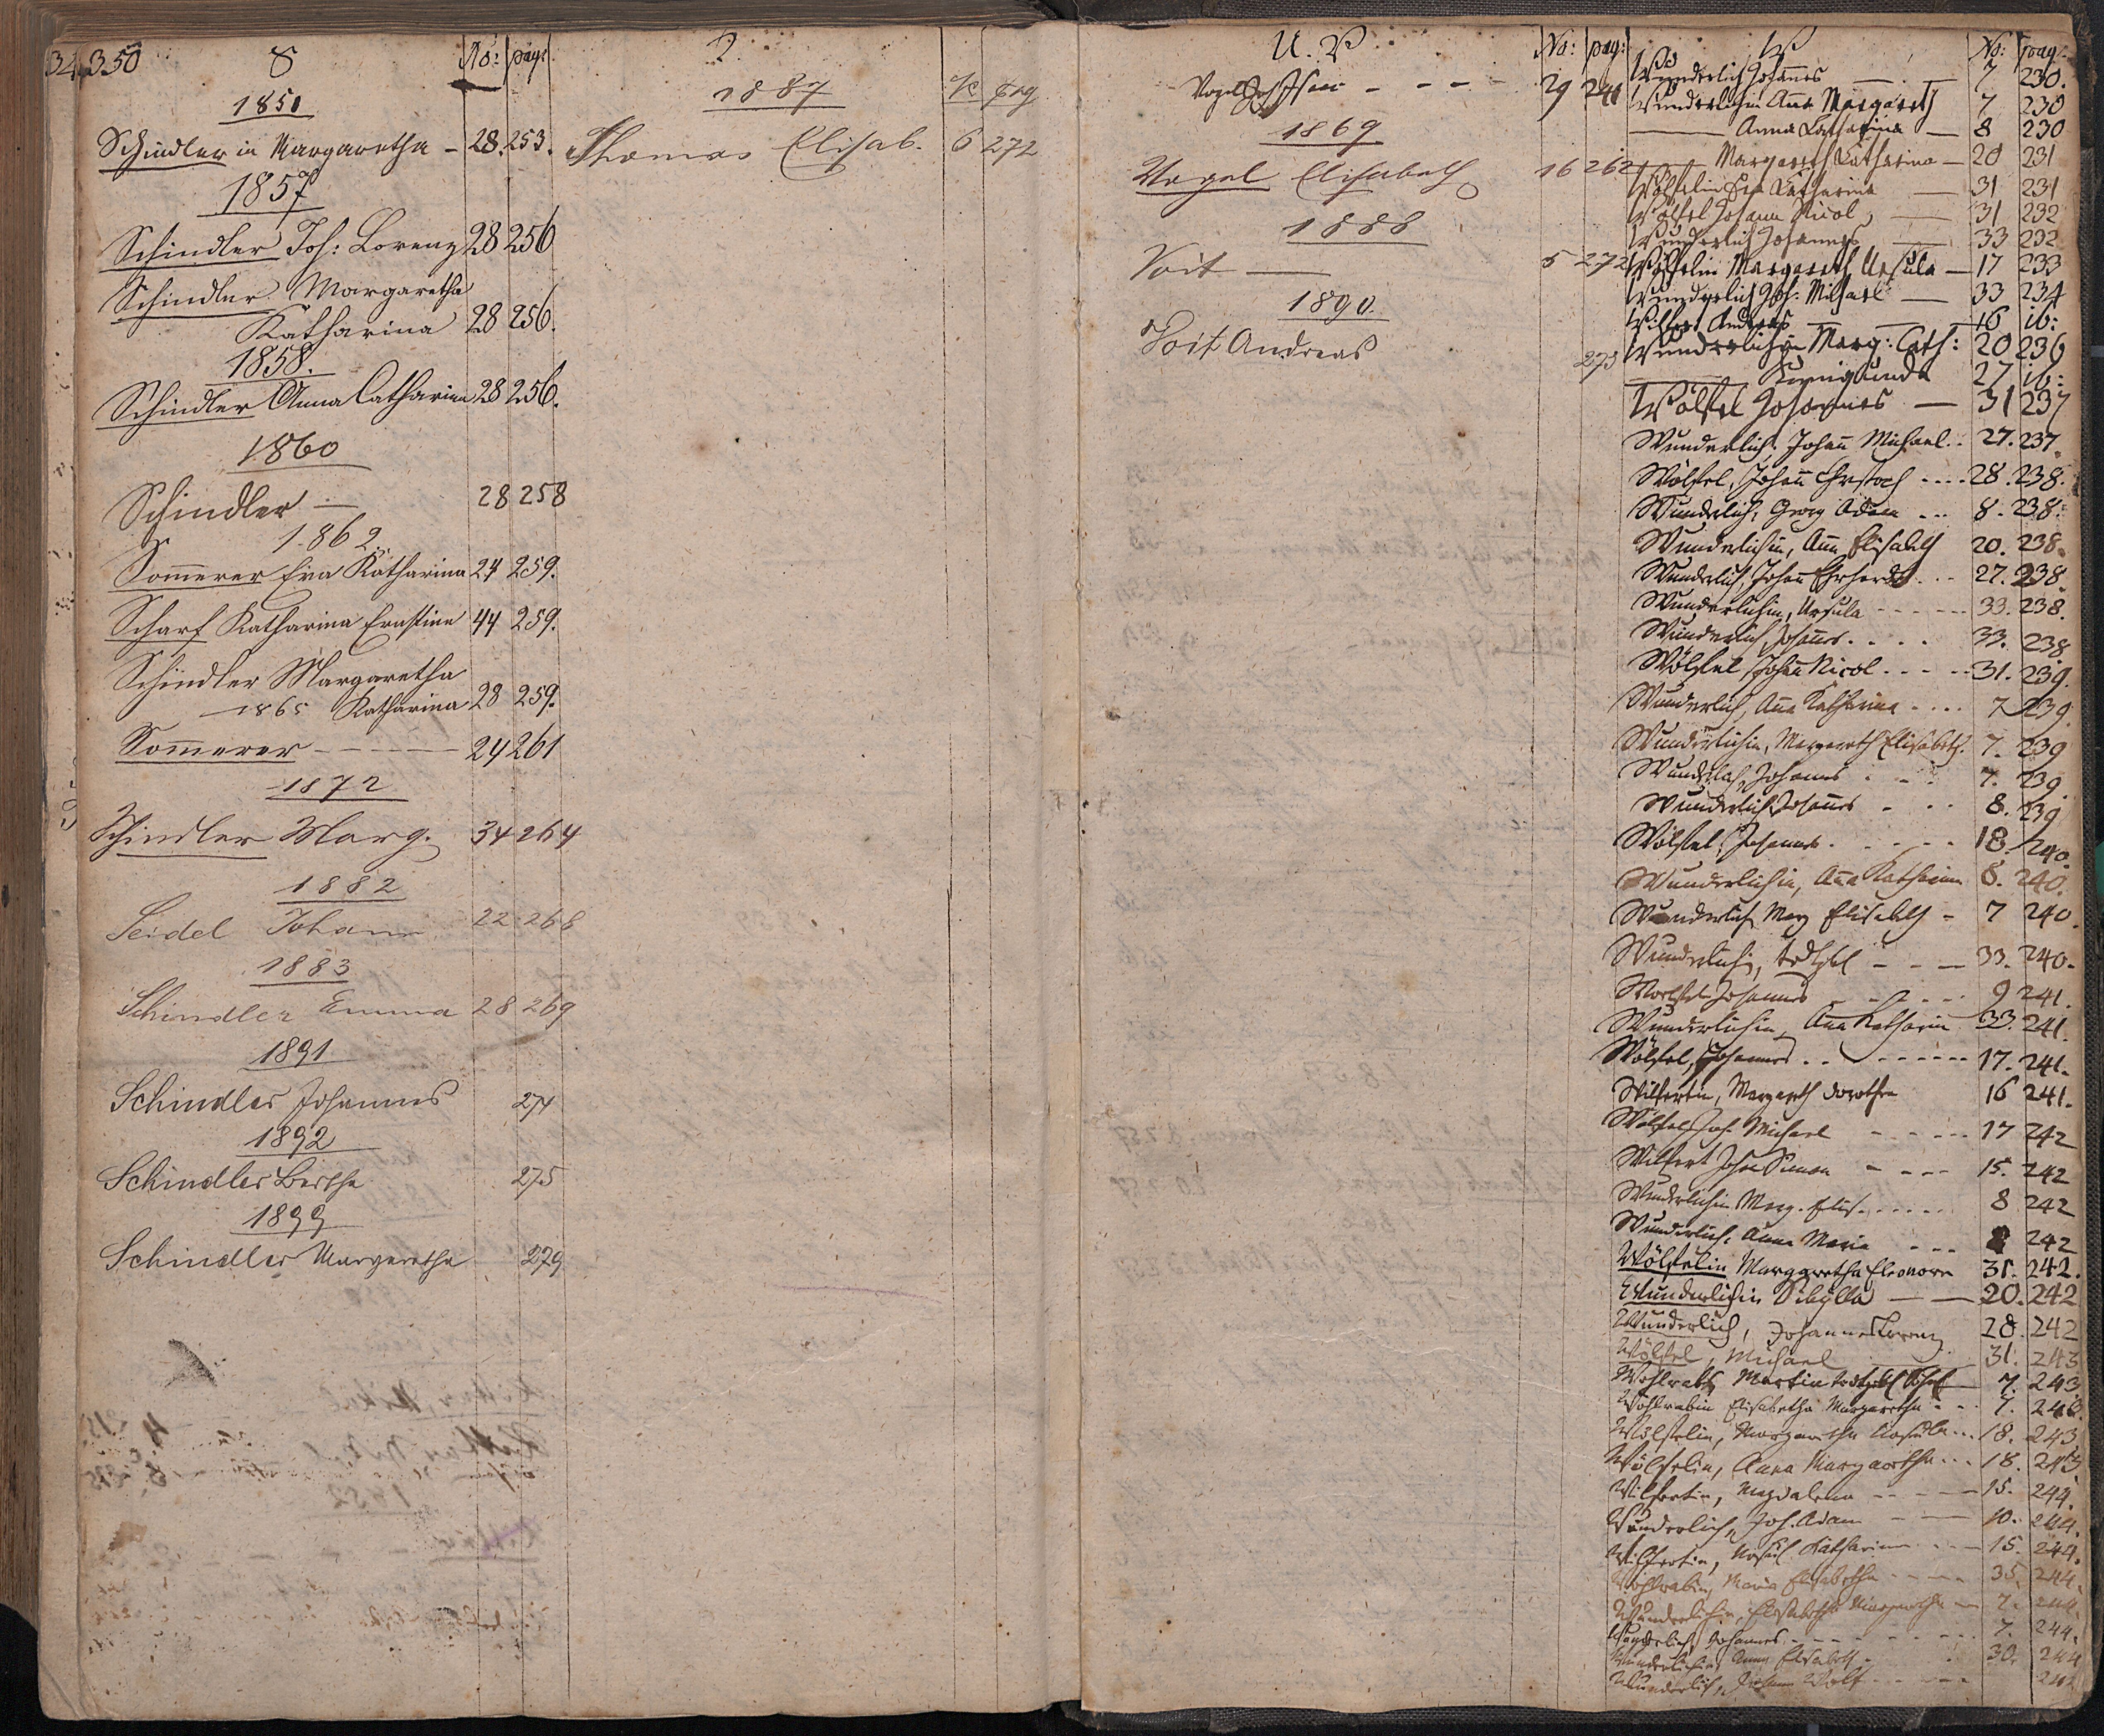 34 350
S No: pag:
1851
Schindler in Margaretha - 28. 253.
1857
Schindler Joh: Lorenz 28 256
Schindler Margaretha
Katharina 28 256.
1858.
Schindler Anna Catharina 28 256.
1860
Schindler — 28 258
1862
Som̄erer Eva Katharina 24 259.
Scharf Katharina Ernstine 44 259.
Schindler Margaretha
1865 Katharina 28 259.
Som̄erer - - - - 24 261
1872
Schindler Marg. 34 264
1882
Seidel Johann 22 268
1883
Schindler Emma 28 269
1891
Schindler Johannes 274
1892
Schindler Bertha 275
1899
Schindler Margaretha 279
1887 pag
Thomas Elisab. 6 272
U. V. No: pag:
Vogel - - - 29 241
1869
Vogel Elisabeth 16 262
1888
Voit — 5 272
1890.
Voit Andreas 273
W No: pag:
Wunderlich Johannes — 7 230.
Wunderlichin Anna Margareth 7 230
— Anna Catharina — 8 230
— Margareth Catharina — 20 231
Wölfelin Eva Katharina — 31 231
Wölfel Johann Nicol, — 31 232
Wunderlich Johannes — 33 232
Wölfelin Margareth Ursula — 17 233
Wunderlich Joh: Michael — 33 234
Wilfert Andreas — 16 ib:
Wunderlichin Marg: Cath: 20 236
— Kunigunda 27 ib:
Wölfel Johannes — 31 237
Wunderlich, Johan̄ Michael.. 27. 237.
Wölfel, Johan̄ Christoph .... 28. 238.
Wunderlich, Georg Adam ... 8. 238.
Wunderlichin, Anna Elisabeth 20. 238.
Wunderlich, Johan̄ Ehrhardt ... 27. 238.
Wunderlichin, Ursula - - - - - 33. 238.
Wunderlich, Johan̄es. . . . 33. 238.
Wölfel, Johan̄ Nicol - - - - 31. 239.
Wunderlich, Anna Katharina .... 7 239.
Wunderlichin, Margareth Elisabeth. 7. 239
Wunderlich, Johannes . . . 7. 239.
Wunderlich, Johannes . . . 8. 239
Wölfel, Johannes. . . . . . 18. 240.
Wunderlichin, Anna Katharina 8. 240.
Wunderlich Marg Elisabeth - 7 240.
Wunderlichin, - - - 33. 240.
Woelfel Johannes - - - - 9 241.
Wunderlichin, Anna Katharin 33. 241.
Wölfel, Johannes . . - - - - - 17. 241.
Wilfertin, Margareth Dorothea 16 241.
Wölfel Joh Michael - - - - 17 242
Wilfert Johan Simon - - - - 15. 242
Wunderlichin Marg. Elis. . . . . . 8 242
Wunderlich, Anna Maria - - - 242
Wölfelin Margaretha Eleonora 31. 242.
Wunderlichin Sibylla — 20. 242
Wunderlich, Johannes Lorenz 28. 242
Wölfel, Michael 31. 243
Wohlrab, Martin 7. 243
Wohlrabin Elisabetha Margaretha - - . 7. 243.
Wölfelin, Margaretha Ursula... 18. 243
Wölfelin, Anna Margaretha... 18. 243
Wilfertin, Magdalena - - - - 15. 244.
Wunderlich, Joh. Adam - — 10. 244.
Wilfertin, Katharina - - - 15. 244.
Wohlrabin, Maria Elisabetha - - - - 35. 244.
Wunderlichin, Elisabetha Margaretha — 7. 244.
Wunderlich, Johannes - - - - - - 7. 244.
Wunderlichin Anna Elisabeth - 30. 244
Wunderlich, Johann Wolf - - - - 244